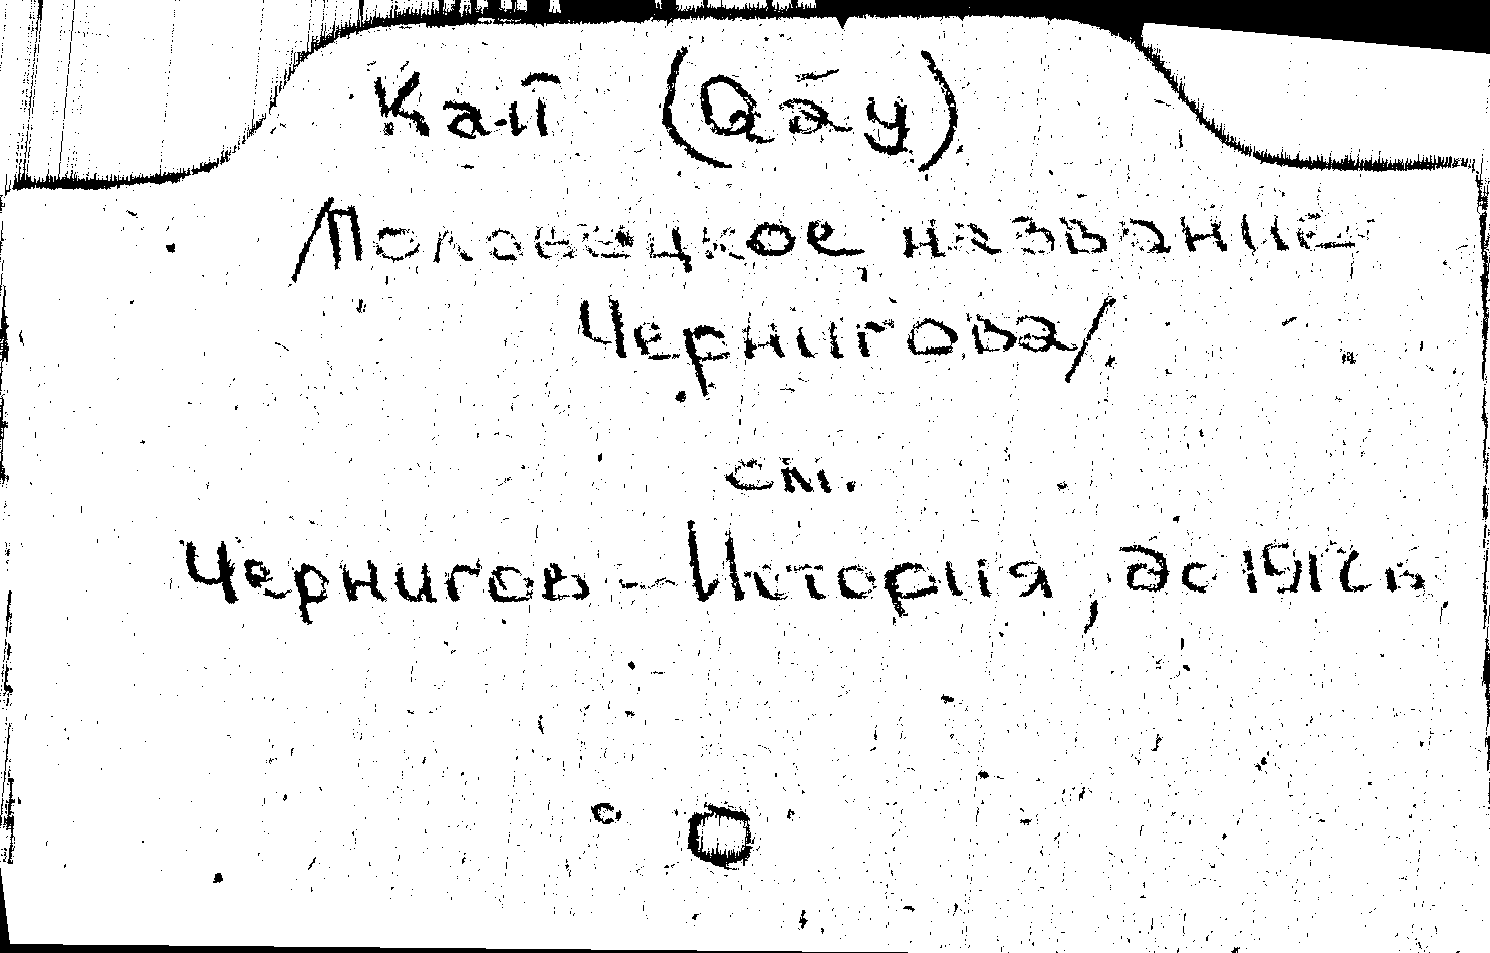 Кай (Qāy)
/Половецкое название
Чернигова/
см.
Чернигов — История, до 1917 г.